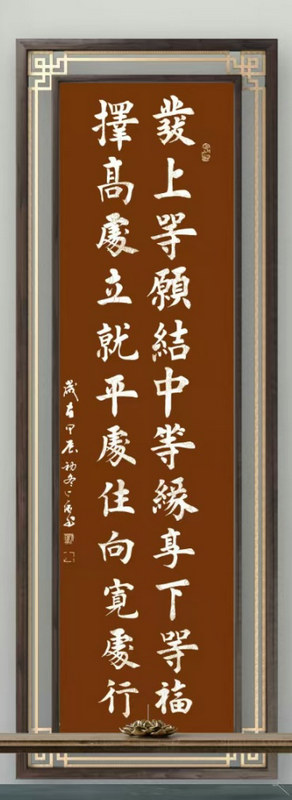 發上等願結中等緣享下等福
擇高處立就平處住向寬處行
歲在甲辰初冬